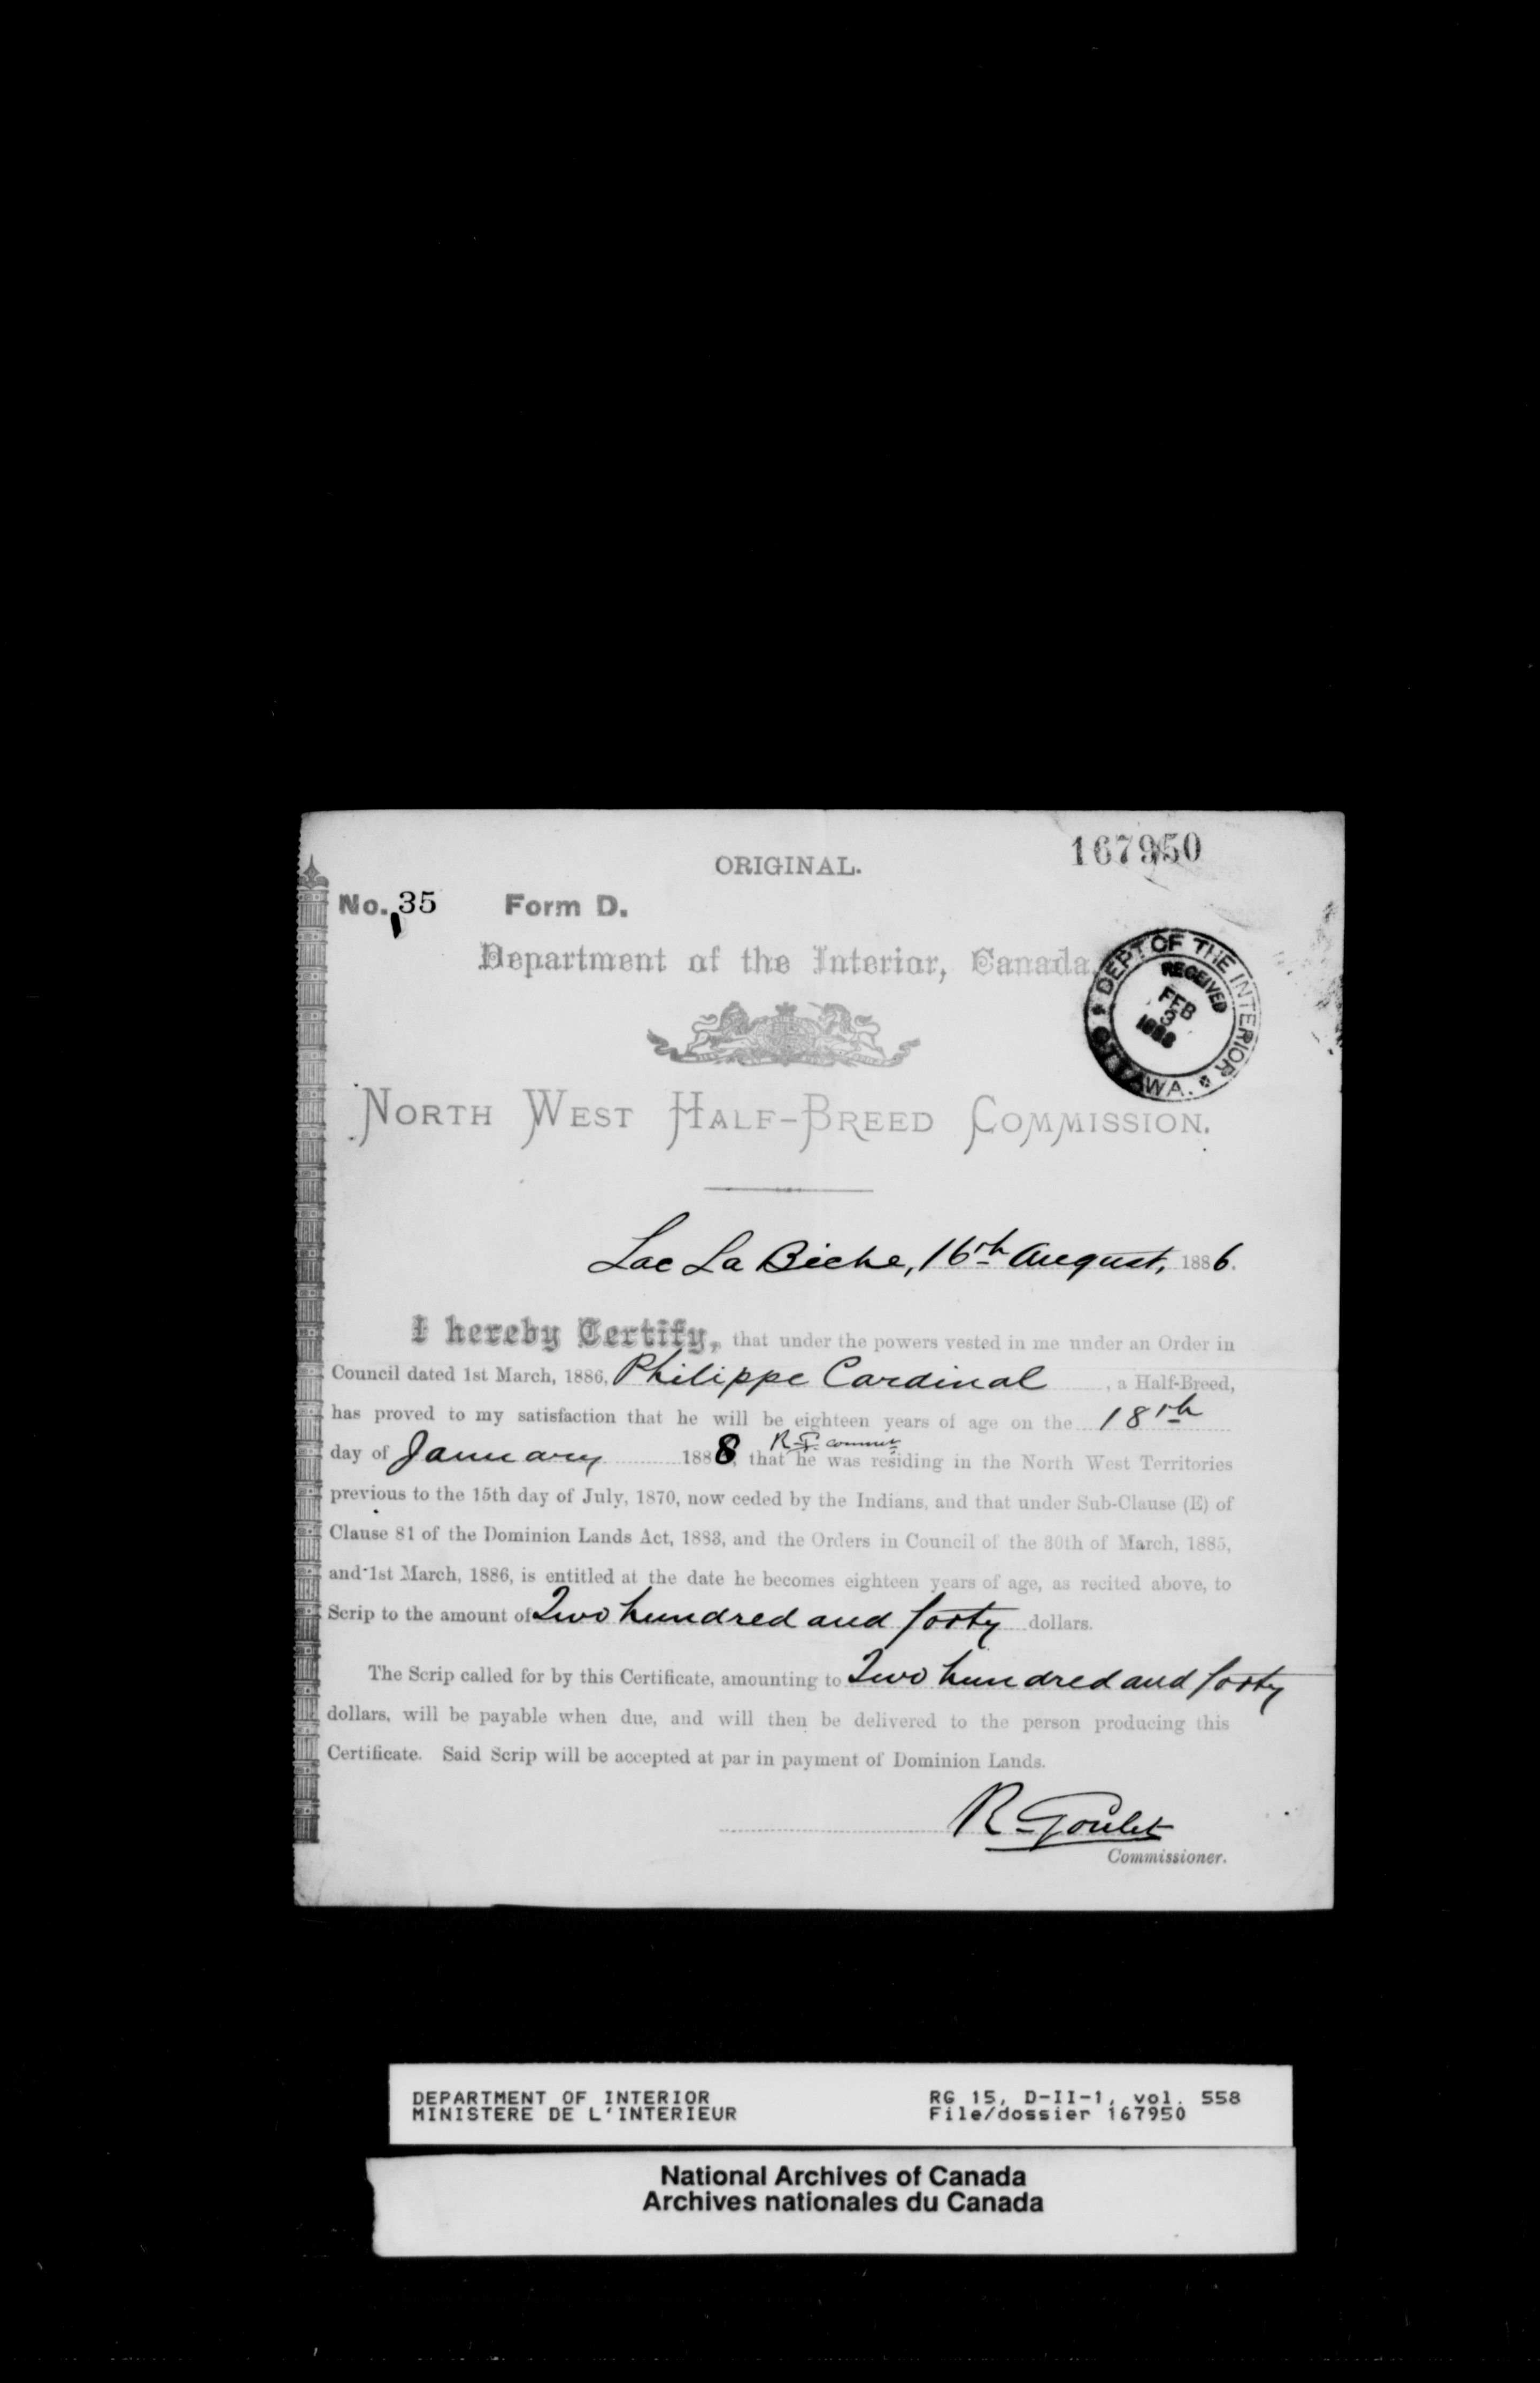 ORIGINAL.
167950
No. 35 Form D.
Department of the Interior, Canada.
DEPT OF THE INTERIOR
RECEIVED
FEB
3
OTTAWA.
NORTH WEST HALF-BREED COMMISSION.
Lac La Biche, 16th August, 1886.
I hereby Certify, that under the powers vested in me under an Order in
Council dated 1st March, 1886, Philippe Cardinal, a Half-Breed,
has proved to my satisfaction that he will be eighteen years of age on the 18th
R-G-
day of January 1888, that he was residing in the North West Territories
previous to the 15th day of July, 1870, now ceded by the Indians, and that under Sub-Clause (E) of
Clause 81 of the Dominion Lands Act, 1883, and the Orders in Council of the 30th of March, 1885,
and 1st March, 1886, is entitled at the date he becomes eighteen years of age, as recited above, to
Scrip to the amount of Two hundred and forty dollars.
The Scrip called for by this Certificate, amounting to Two hundred and forty
dollars, will be payable when due, and will then be delivered to the person producing this
Certificate. Said Scrip will be accepted at par in payment of Dominion Lands.
R-Goulet
Commissioner.
DEPARTMENT OF INTERIOR RG 15, D-II-1, vol. 558
MINISTERE DE L'INTERIEUR File/dossier 167950
National Archives of Canada
Archives nationales du Canada